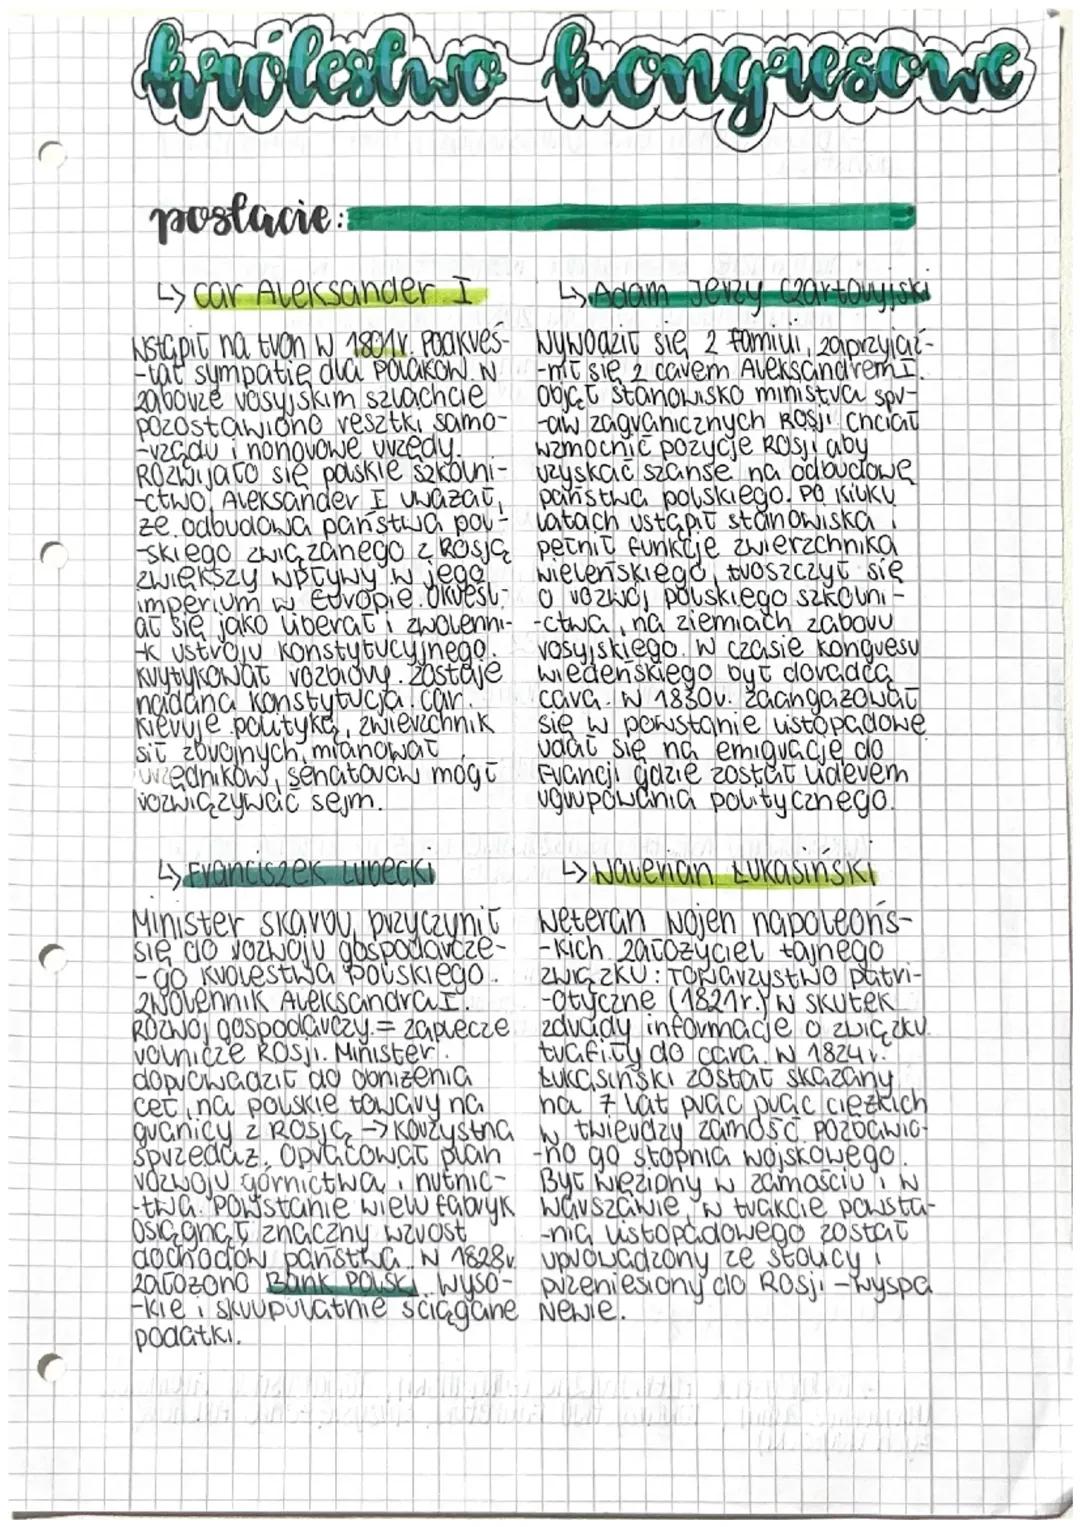 królestwo kongresowe
postacie:
↳ car Aleksander I
Wstąpił na tron w 1801r. Podkreś-
-lał sympatię dla polaków. W
zaborze rosyjskim szlachcie
pozostawiono resztki samo-
-rządu i honorowe urzędy.
Rozwijało się polskie szkolni-
-ctwo. Aleksander I uważał,
że odbudowa państwa pol-
-skiego związanego z Rosją
zwiększy wpływy w jego
imperium w Europie. Określ-
ał się jako liberał i zwolenni-
-k ustroju konstytucyjnego.
Krytykował rozbiory. Zostaje
nadana konstytucja. car.
Kieruje polityką, zwierzchnik
sił zbrojnych, mianował
urzędników, senatorów mógł
rozwiązywać sejm.
↳ Adam Jerzy Czartoryjski
Wywodził się z familii, zaprzyjaź-
-nił się z carem Aleksandrem I.
Objął stanowisko ministra spr-
-aw zagranicznych Rosji. Chciał
wzmocnić pozycje Rosji aby
uzyskać szansę na odbudowę
państwa polskiego. Po kilku
latach ustąpił stanowiska i
pełnił funkcje zwierzchnika
wileńskiego, troszczył się
o rozwój polskiego szkolni-
-ctwa, na ziemiach zaboru
rosyjskiego. W czasie kongresu
wiedeńskiego był doradcą
cara. W 1830r. zaangażował
się w powstanie listopadowe
udał się na emigrację do
Francji gdzie został liderem
ugrupowania politycznego.
↳ Franciszek Lubecki
Minister skarbu, przyczynił
się do rozwoju gospodarcze-
-go Królestwa Polskiego.
Zwolennik Aleksandra I.
Rozwój gospodarczy = zaplecze
rolnicze Rosji. Minister
doprowadził do obniżenia
ceł, na polskie towary na
granicy z Rosją → korzystna
sprzedaż. Opracował plan
rozwoju górnictwa i hutnic-
-twa. Powstanie wielu fabryk
Osiągnął znaczny wzrost
dochodów państwa. W 1828r
założono Bank Polski. Wyso-
-kie i skrupulatnie ściągane
podatki.
↳ Walerian Łukasiński
Weteran wojen napoleońs-
-kich. Założyciel tajnego
związku: Towarzystwo Patri-
-otyczne (1821r.) W skutek
zdrady informacje o związku
trafiły do cara. W 1824r.
Łukasiński został skazany
na 7 lat prac prac ciężkich
w twierdzy Zamość. Pozbawio-
-no go stopnia wojskowego.
Był więziony w Zamościu i w
Warszawie, w trakcie powsta-
-nia listopadowego został
uprowadzony ze stolicy i
przeniesiony do Rosji - wyspa
Newie.